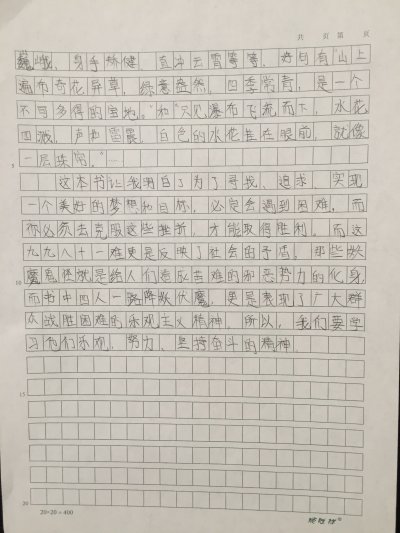 共 页 第 页
巍峨、身手矫健、直冲云霄等等。好句有“山上
遍布奇花异草，绿意盎然，四季常青，是一个
不可多得的宝地。”和“只见瀑布飞流而下，水花
四溅，声如雷震，白色的水花挂在眼前，就像
一层珠帘。”
5
这本书让我明白了为了寻找、追求、实现
一个美好的梦想和目标，必定会遇到困难，而
你必须去克服这些挫折，才能取得胜利。而这
九九八十一难更是反映了社会的矛盾。那些妖
魔鬼怪就是给人们造成苦难的邪恶势力的化身
10
而书中四人一路降妖伏魔，更是表现了广大群
众战胜困难的乐观主义精神。所以，我们要学
习他们乐观、努力、坚持奋斗的精神。
15
20
20×20=400